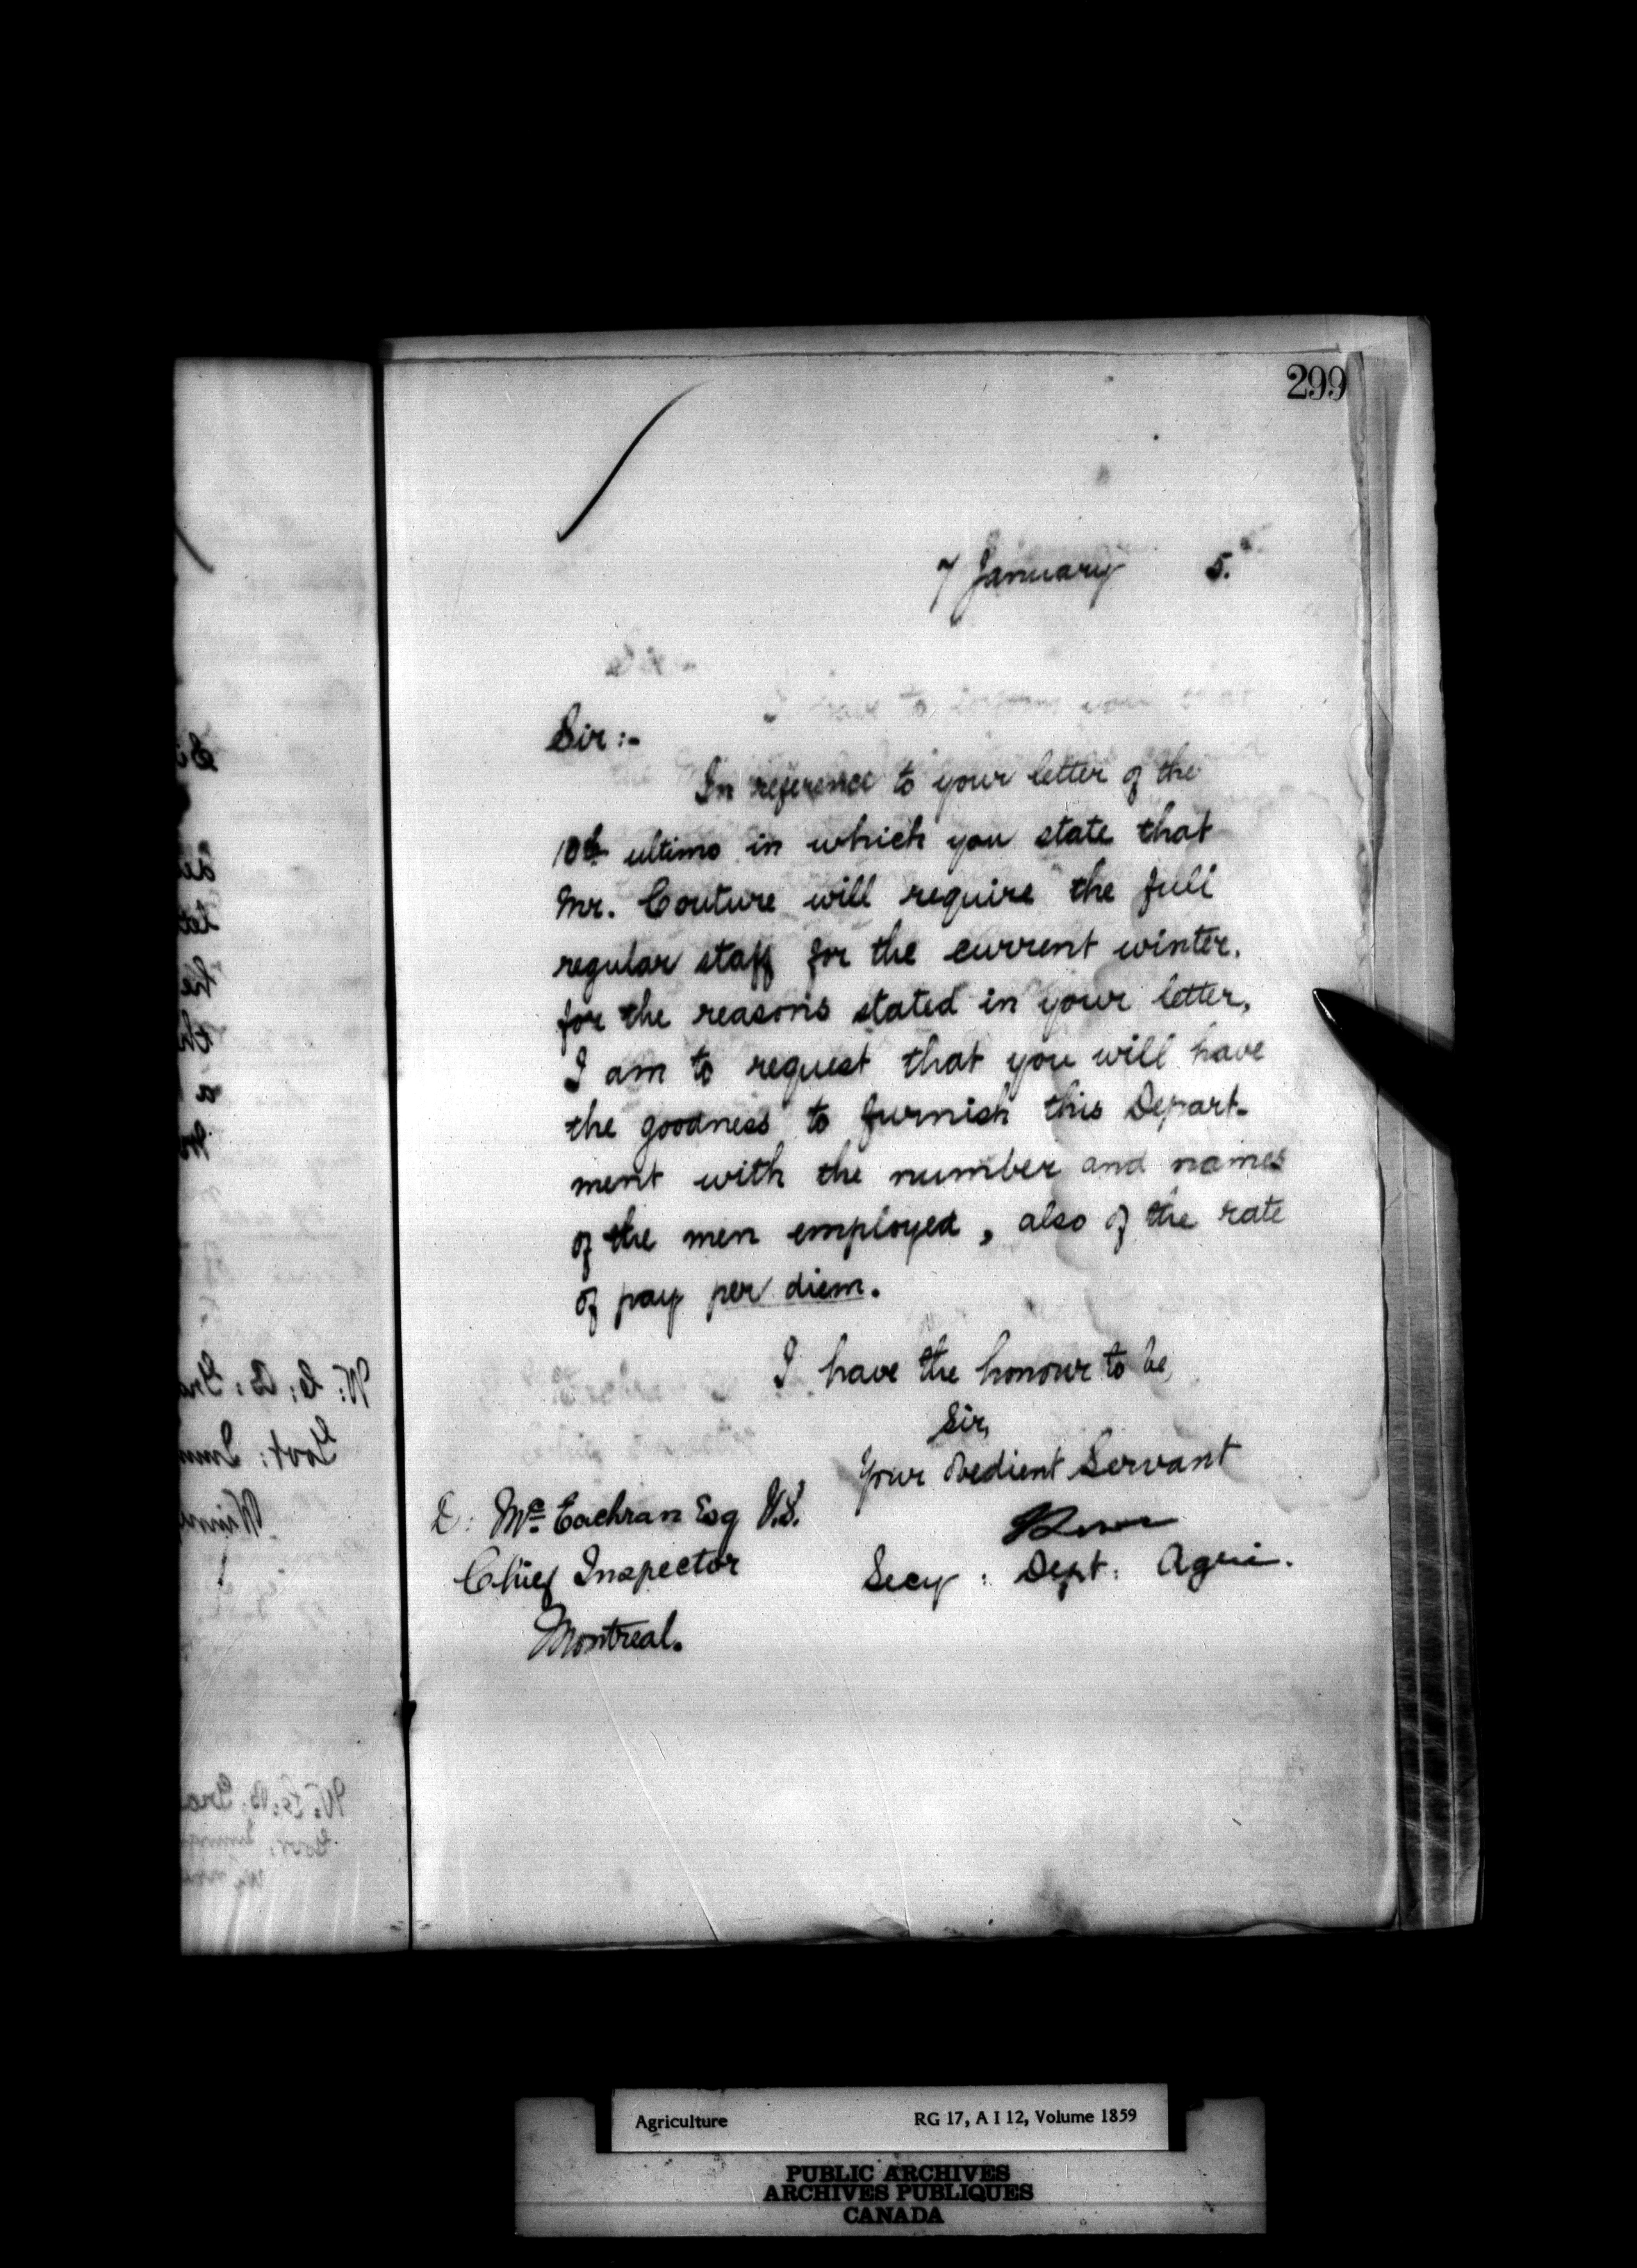 299
7 January 5.
Sir :-
In reference to your letter of the
10th ultimo in which you state that
Mr. Couture will require the full
regular staff for the current winter.
for the reasons stated in your letter,
I am to request that you will have
the goodness to furnish this Depart-
ment with the number and names
of the men employed, also of the rate
of pay per diem.
I have the honour to be,
Sir,
Your Obedient Servant
Secy : Dept : Agri.
D: Mc Eachran Esq V.S.
Chief Inspector
Montreal.
Agriculture RG 17, A I 12, Volume 1859
PUBLIC ARCHIVES
ARCHIVES PUBLIQUES
CANADA